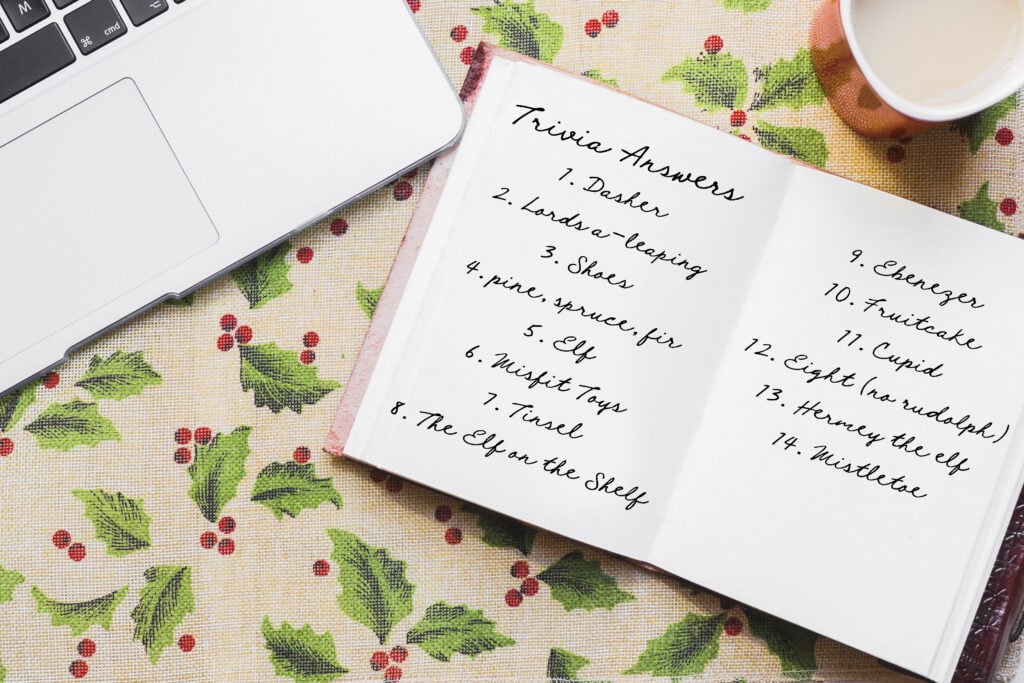 W
⌘
cmd
alt
Trivia Answers
1. Dasher
2. Lords a-leaping
3. Shoes
4. pine, spruce, fir
5. Elf
6. Misfit Toys
7. Tinsel
8. The Elf on the Shelf
9. Ebenezer
10. Fruitcake
11. Cupid
12. Eight (no rudolph)
13. Hermey the elf
14. Mistletoe